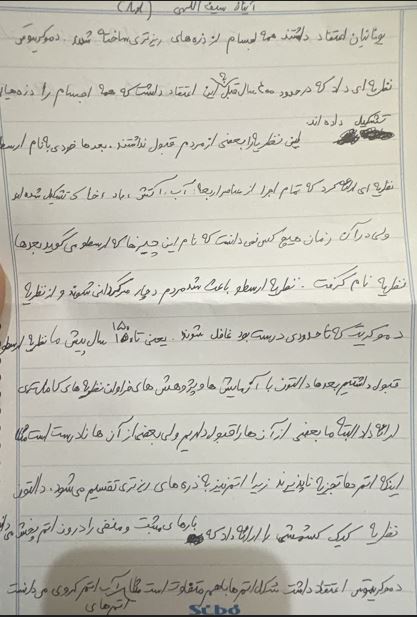 یونانیان اعتقاد داشتند همه اجسام از ذره های ریزتری ساخته شده. دموکریتوس
نظریه ای داد که در حدود ۲۰۰۰ سال قبل این اعتقاد داشت که همه اجسام را ذره هایی
تشکیل داده اند
این نظریه را بعضی از مردم قبول نداشتند. بعدها فردی با نام ارسطو
نظریه ای ارائه کرد که تمام اجزا از عناصر اربعه: آب، آتش، باد، خاک تشکیل شده اند
ولی در آن زمان هیچ کس نمی دانست که نام این چیزها که ارسطو می گوید بعدها
نظریه نام گرفت. نظریه ارسطو باعث شد مردم دچار سرگردانی شوند و از نظریه
دموکریت که تا حدودی درست بود غافل شوند. یعنی تا ۱۵۰ سال پیش ما نظریه ارسطو
قبول داشتیم بعدها دالتون با آزمایش ها و پژوهش های فراوان نظریه های کاملتری
ارائه داد البته ما بعضی از آن ها را قبول داریم ولی بعضی از آن ها نادرست است مثلا
اینکه اتم ها تجزیه ناپذیرند زیرا اتم نیز به ذره های ریزتری تقسیم می شود. دالتون
نظریه کیک کشمشی را ارائه داد که بارهای مثبت و منفی را درون اتم پخش می داند
دموکریتوس اعتقاد داشت شکل اتم ها باهم متفاوت است مثلا آب اتم کروی می دانست
اتم های